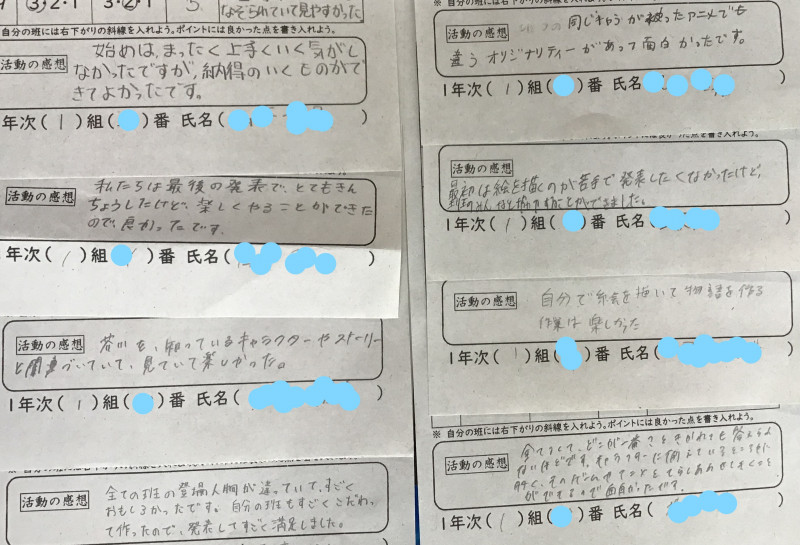 3 ③・2・1 3・②・1 5
なぞられていて見やすかった
自分の班には右下がりの斜線を入れよう。ポイントには良かった点を書き入れよう。
活動の感想
始めは、まったく上手くいく気がし
なかったですが、納得のいくものがで
きてよかったです。
1年次(1)組( )番 氏名( )
活動の感想
私たちは最後の発表で、とてもきん
ちょうしたけど、楽しくやることができた
ので、良かったです。
年次( 1 )組( )番 氏名( )
活動の感想
知っているキャラクターやストーリー
と関連づいていて、見ていて楽しかった。
1年次( 1 )組( )番 氏名( )
活動の感想
全ての班の登場人物が違っていて、すごく
おもしろかったです。自分の班もすごくこだわっ
て作ったので、発表してすごく満足しました。
※ 自分の班には右下がりの斜線を入れよう。ポイントには良かった点を書き入れよう。
活動の感想
同じキャラが被ったアニメでも
違うオリジナリティーがあって面白かったです。
1年次( 1 )組( )番 氏名( )
活動の感想
最初は絵を描くのが苦手で発表したくなかったけど、
班のみんなと協力することができました。
1年次( 1 )組( )番 氏名( )
活動の感想
自分で絵を描いて物語を作る
作業は楽しかった
1年次( 1 )組( )番 氏名( )
※ 自分の班には右下がりの斜線を入れよう。ポイントには良かった点を書き入れよう。
活動の感想
全てよくて、どこが一番ときかれても答えられ
ないほどです。キャラクターに
ができるので面白かったです。
1年次( 1 )組( )番 氏名( )